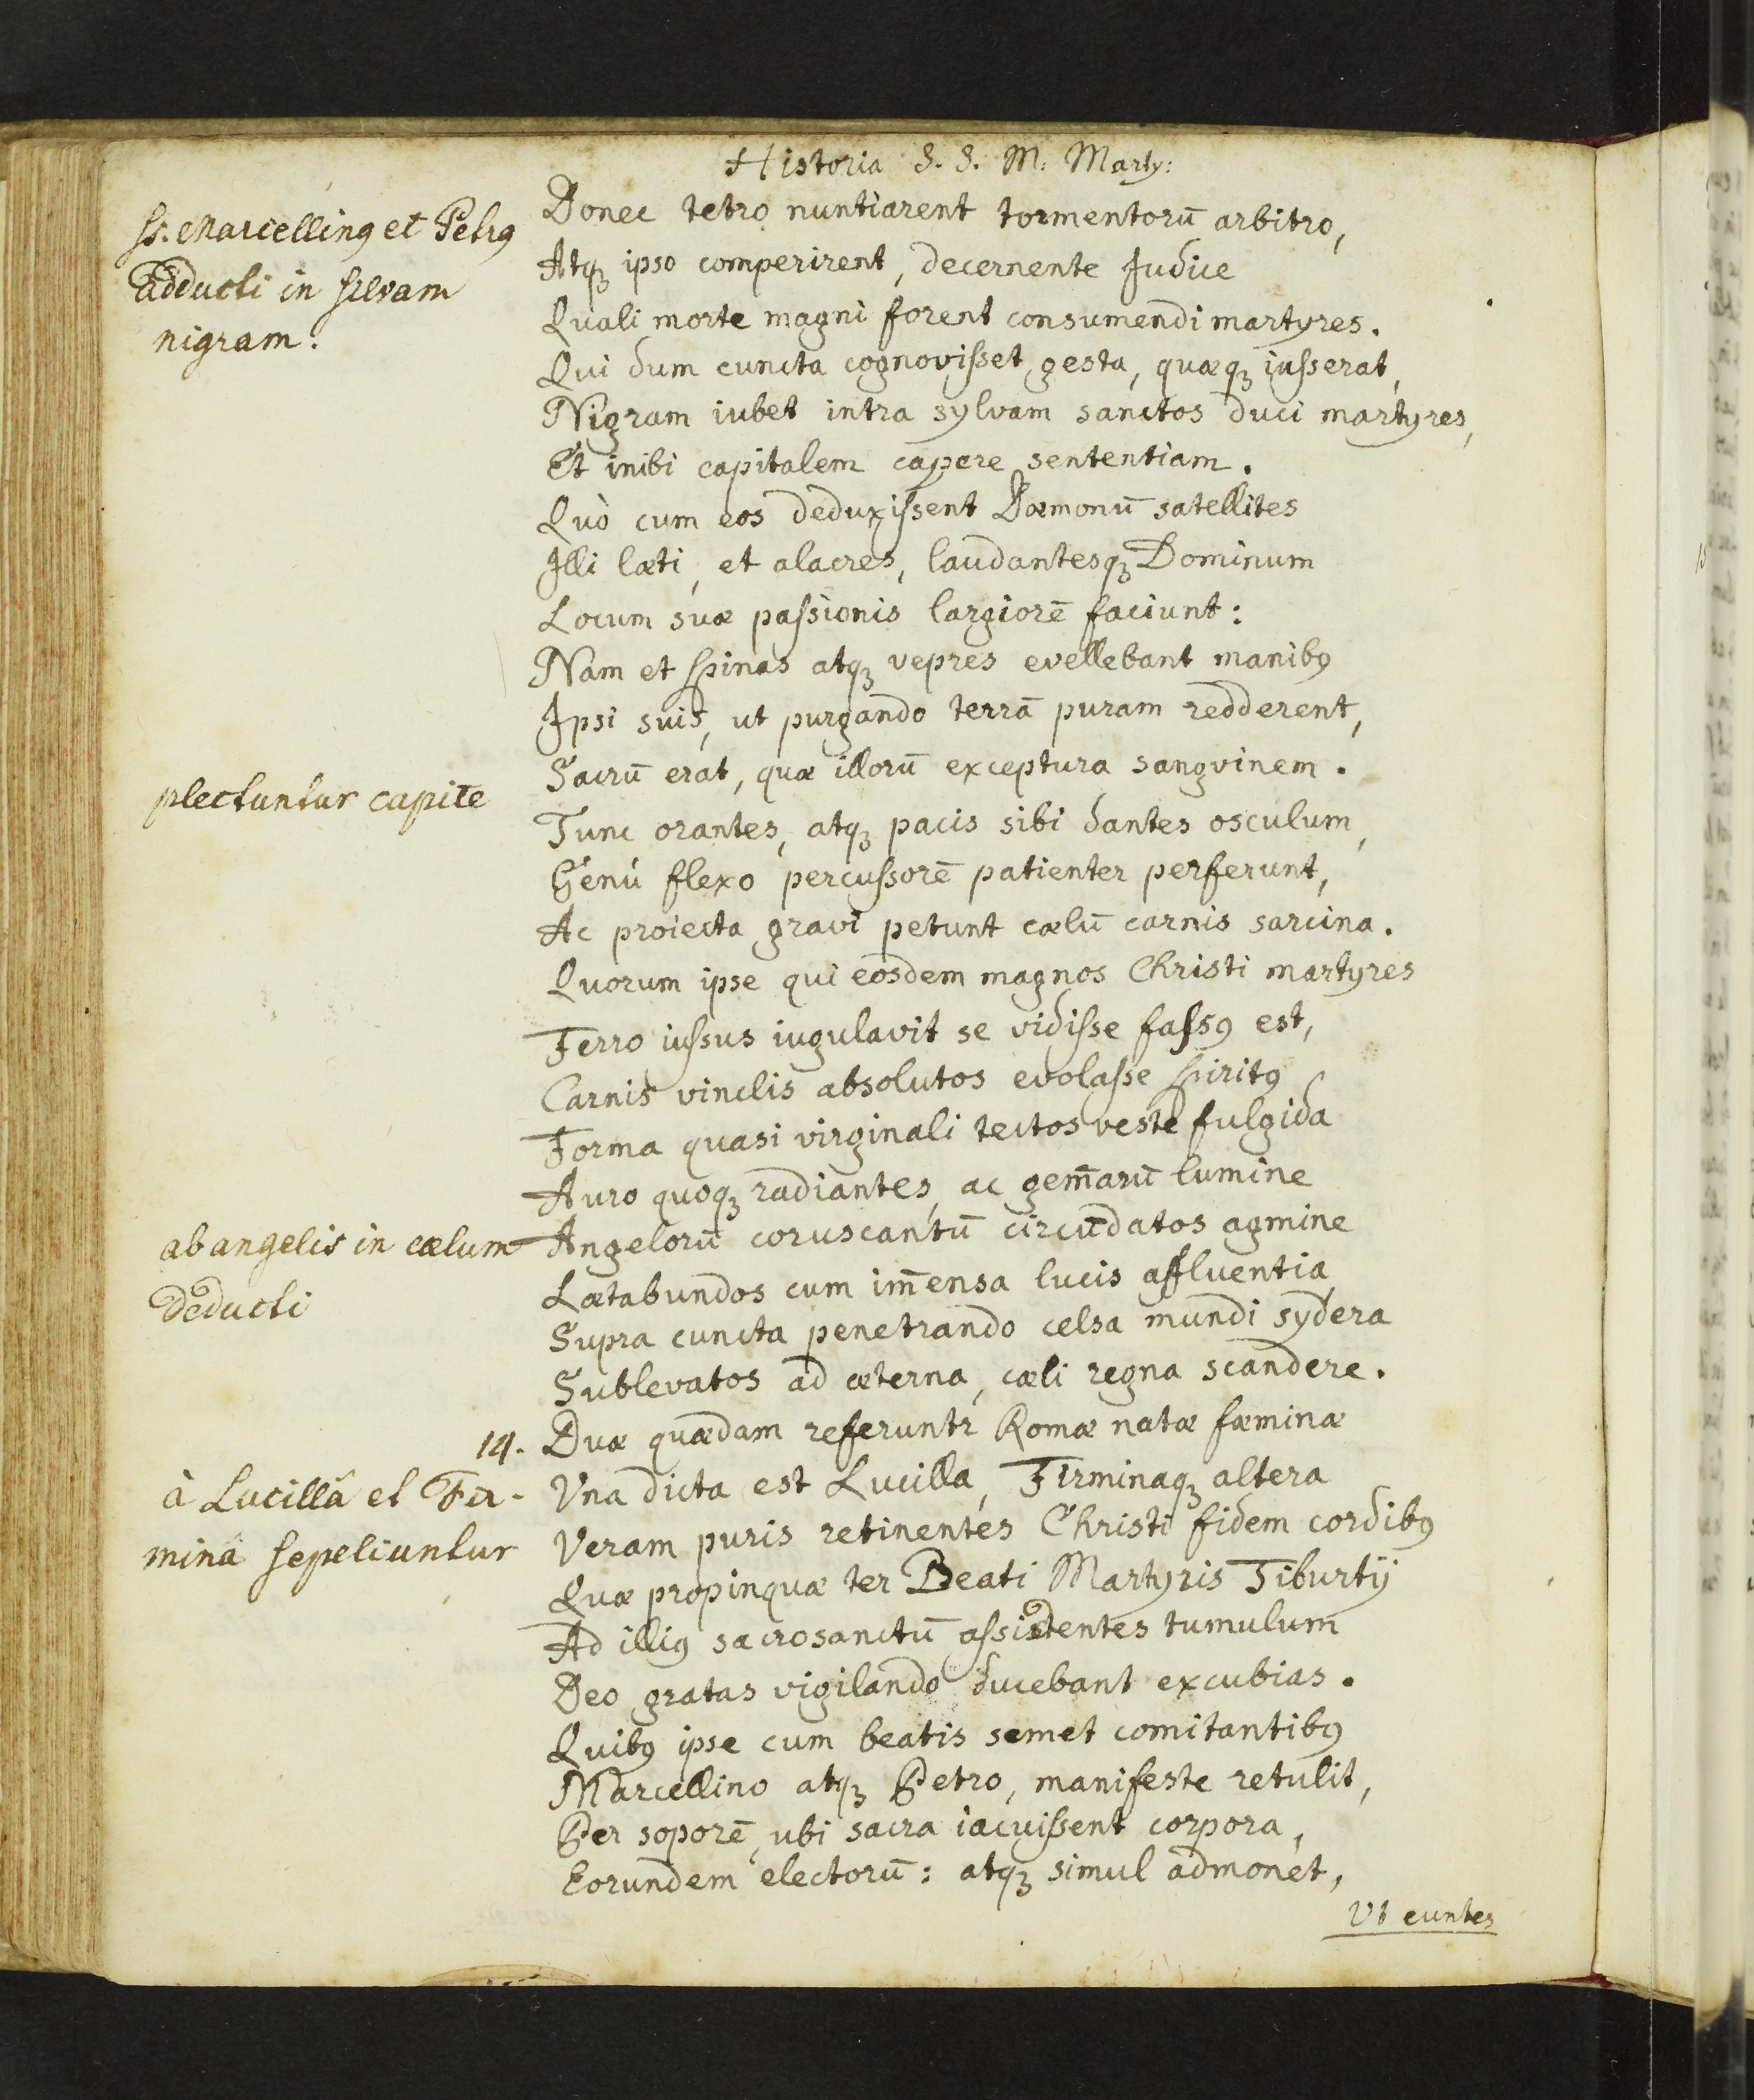 Historia S. S. M: Marty:
Donec tetro nuntiarent tormentorū arbitro,
ſs. Marcellinꝰ et Petrꝰ
adducti in ſilvam
nigram.
Atqꝫ ipso comperirent, decernente Judice
Quali morte magni forent consumendi martyres.
Qui dum cuncta cognoviſset gesta, quæqꝫ iuſserat,
Nigram iubet intra sylvam sanctos duci martyres,
Et inibi capitalem capere sententiam.
Quò cum eos deduxiſsent Dæmonū satellites
Illi læti, et alacres, laudantesqꝫ Dominum
Locum suæ paſsionis largiorē faciunt:
Nam et ſpinas atqꝫ vepres evellebant manibꝰ
Ipsi suis, ut purgando terrā puram redderent,
Sacrū erat, quæ illorū exceptura sangvinem.
plectuntur capite
Tunc orantes, atqꝫ pacis sibi dantes osculum,
Genú flexo percuſsorē patienter perferunt,
Ac proiecta gravi petunt cælū carnis sarcina.
Quorum ipse qui eosdem magnos Christi martyres
Ferro iuſsus iugulavit se vidiſse faſsꝰ est,
Carnis vinclis absolutos evolaſse ſpiritꝰ
Forma quasi virginali tectos veste fulgida
Auro quoqꝫ radiantes, ac gem̄arū lumine
ab angelis in cælum
deducti
Angelorū coruscantū circūdatos agmine
Lætabundos cum im̄ensa lucis affluentia
Supra cuncta penetrando celsa mundi sydera
Sublevatos ad æterna, cæli regna scandere.
14.
Duæ quædam referuntr Romæ natæ fæminæ
à Lucillâ et Fir-
minâ ſepeliuntur
Vna dicta est Lucilla, Firminaqꝫ altera
Veram puris retinentes Christi fidem cordibꝰ
Quæ propinquæ ter Beati Martyris Tiburtij
Ad illiꝰ sacrosanctū aſsidentes tumulum
Deo gratas vigilando ducebant excubias.
Quibꝰ ipse cum beatis semet comitantibꝰ
Marcellino atqꝫ Petro, manifeste retulit,
Per soporē, ubi sacra iacuiſsent corpora,
Eorundem electorū: atqꝫ simul admonet,
Vt euntes